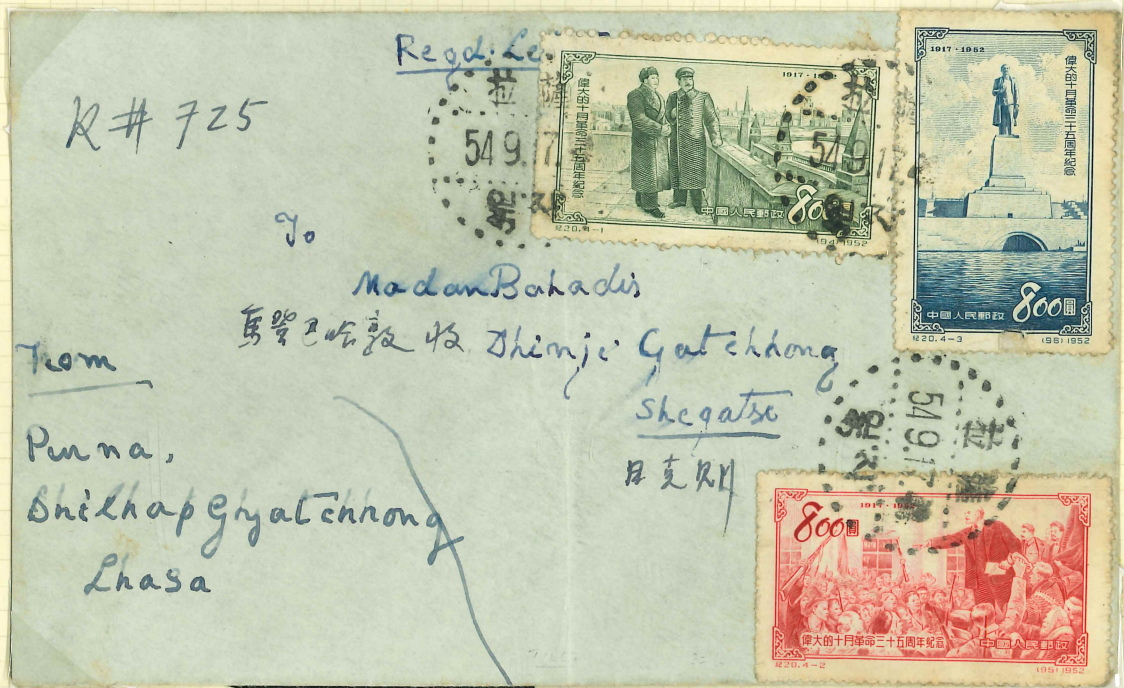 Regd. Le
R# 725
1917·1952
偉大的十月革命三十五周年紀念
中國人民郵政
800圓
紀20.4-1
(94)1952
1917·1952
偉大的十月革命三十五周年紀念
中國人民郵政
800圓
紀20.4-3
(96)1952
拉薩
54.9.17
拉薩
54.9.17
To
Madan Bahadis
收 Dhinji Gatchhong
Shegatse
日克則
From
Purna,
Dhilhap Ghyatchhong
Lhasa
拉薩
54.9.1
1917·1952
800圓
偉大的十月革命三十五周年紀念
中國人民郵政
紀20.4-2
(95)1952